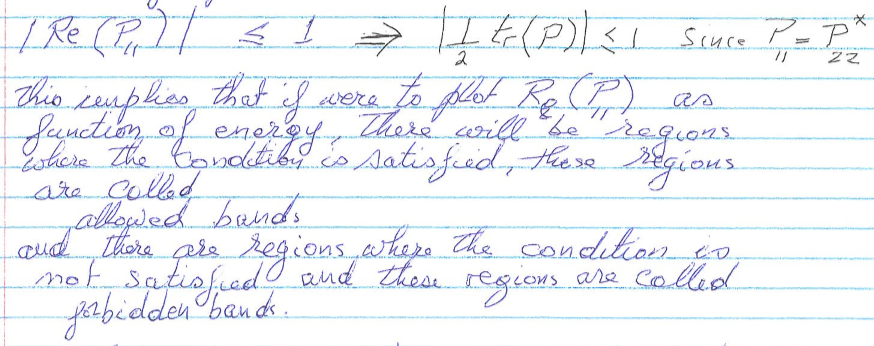 |Re(P₁₁)| ≤ 1 ⇒ |1/2 tr(P)| ≤ 1 Since P₁₁ = P₂₂*
This implies that if were to plot Re(P₁₁) as
function of energy, There will be regions
where the condition is satisfied, these regions
are called
allowed bands
and there are regions where the condition is
not satisfied and these regions are called
forbidden bands.